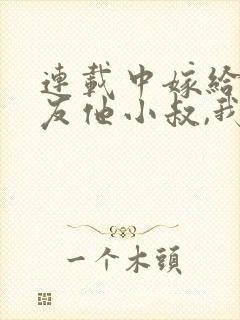 連載中嫁給
友他小叔,我
一个木頭